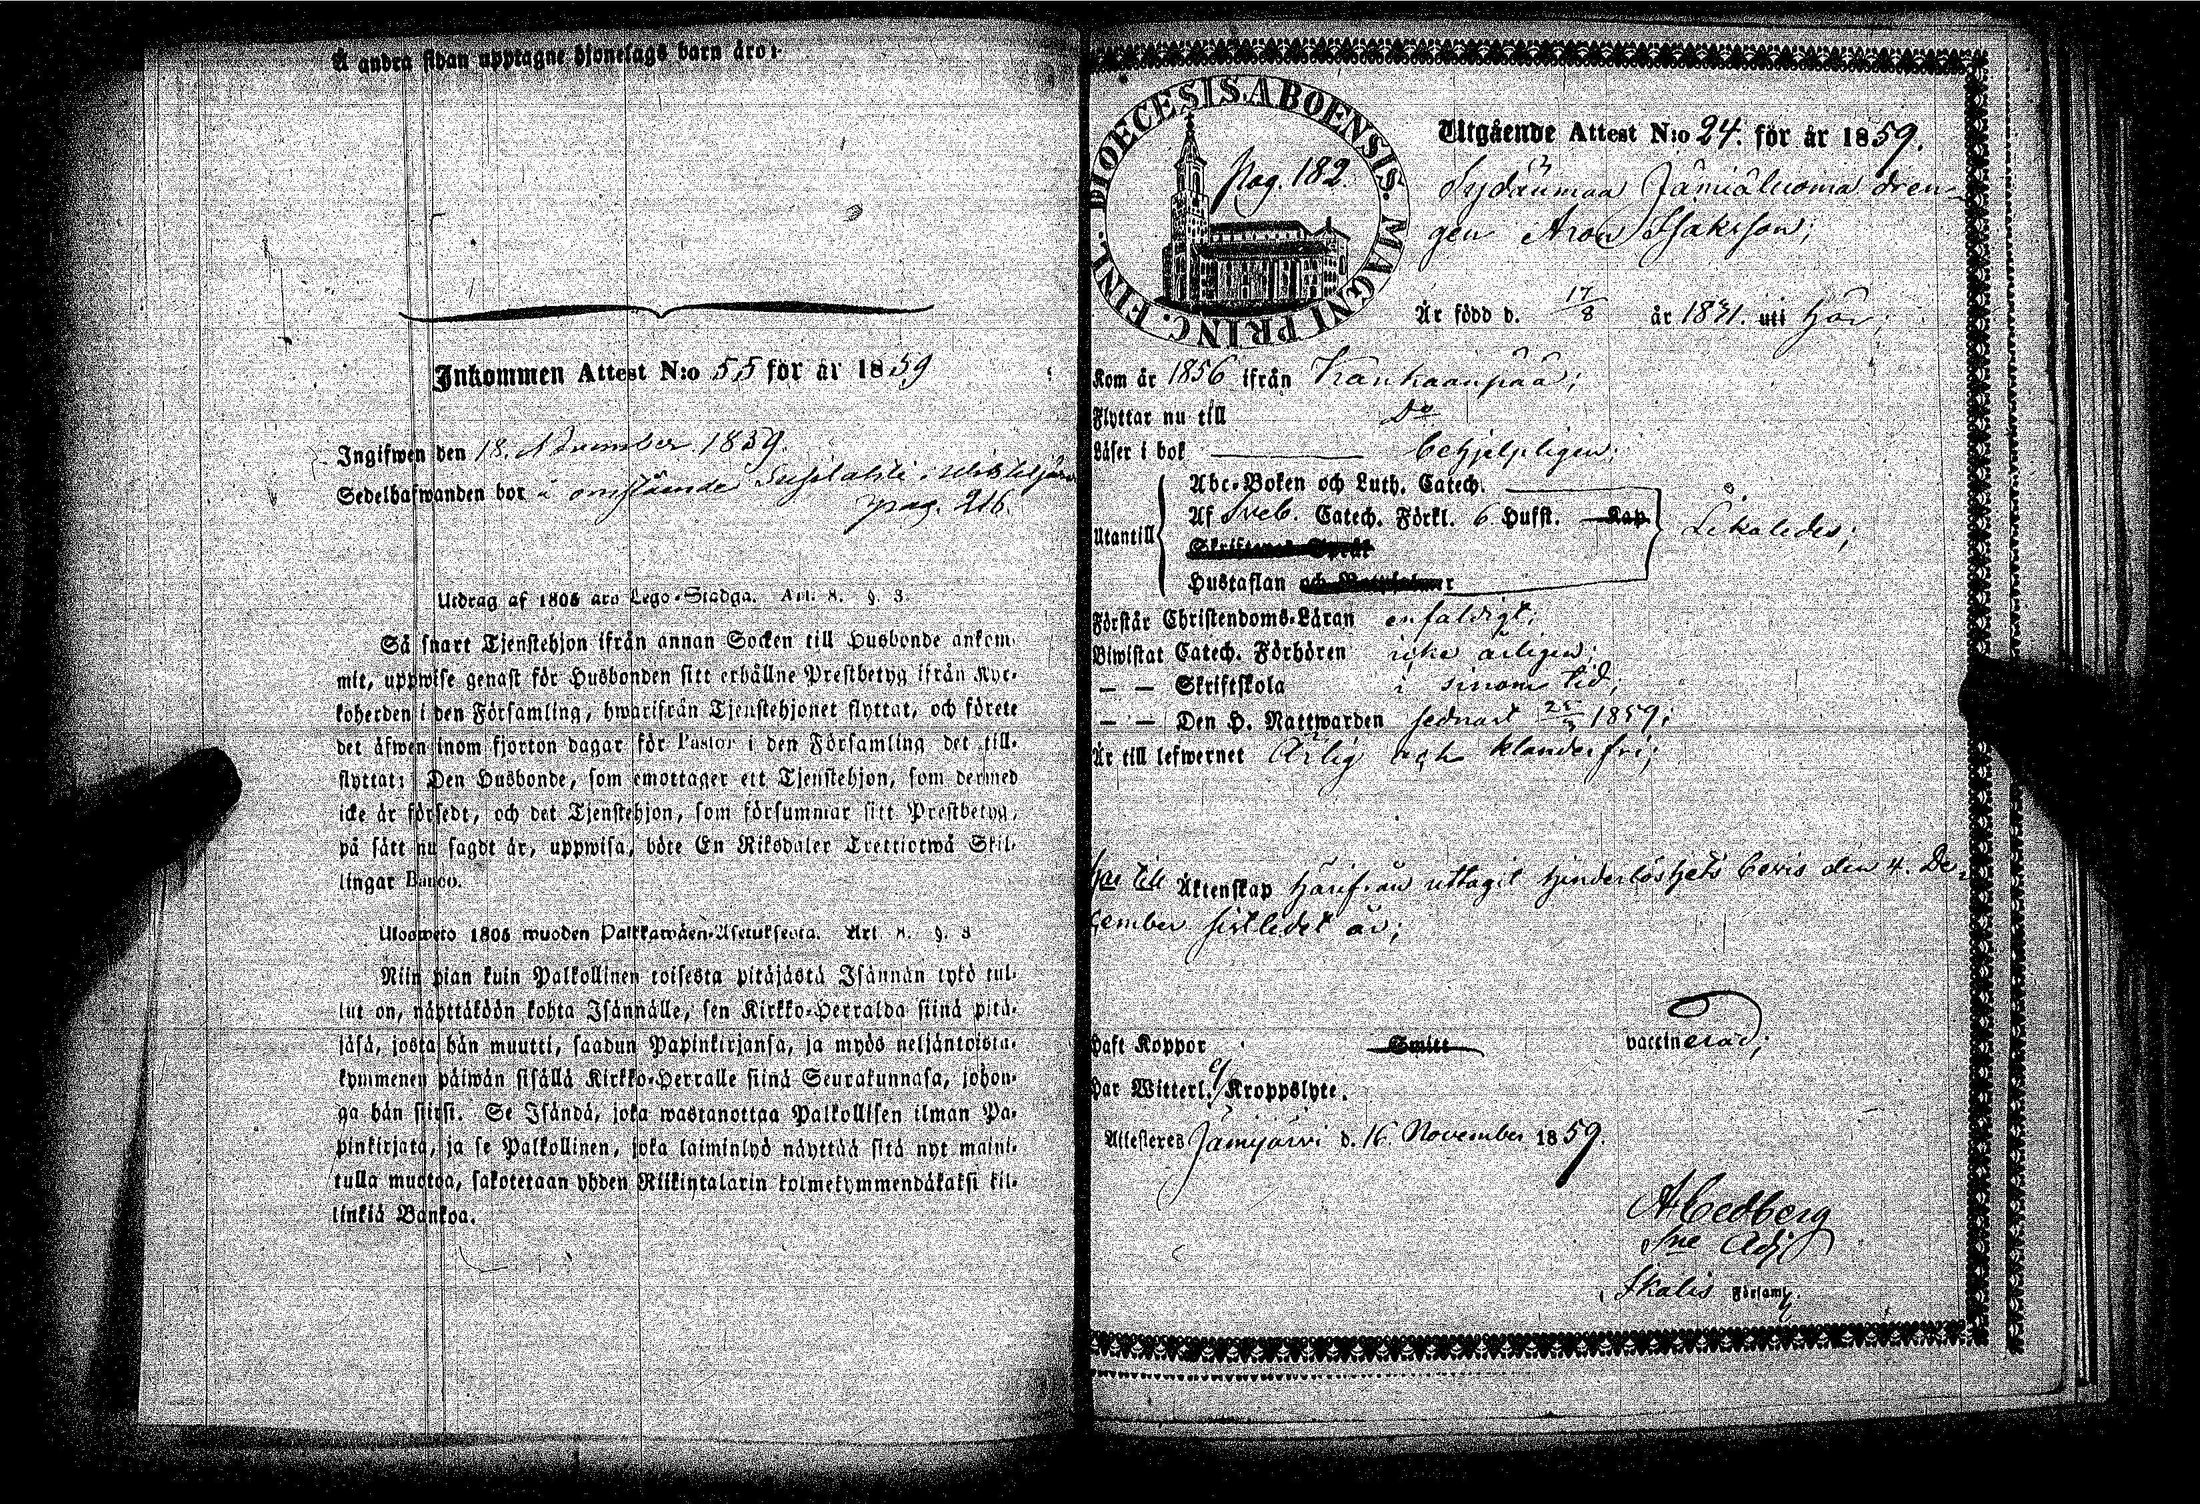 Å andra sidan upptagne hjonelags barn äro:
Inkommen Attest N:o 55 för år 1859
Ingifwen den 18. November 1859.
Sedelhafwanden bor å omstående
pag. 216.
Utdrag af 1805 års Lego-Stadga. Art. 8. §. 3.
Så snart Tjenstehjon ifrån annan Socken till Husbonde ankom-
mit, uppwise genast för Husbonden sitt erhållne Prestbetyg ifrån Kyr-
koherden i den Församling, hwarifrån Tjenstehjonet flyttat, och förete
det äfwen inom fjorton dagar för Pastor i den Församling det till-
flyttat: Den Husbonde, som emottager ett Tjenstehjon, som dermed
icke är försedt, och det Tjenstehjon, som försummar sitt Prestbetyg,
på sätt nu sagdt är, uppwisa, böte En Riksdaler Trettiotwå Skil-
lingar Banco.
Ulosweto 1805 wuoden Palkkawäen-Asetuksesta. Art. 8. §. 3
Niin pian kuin Palkollinen toisesta pitäjästä Isännän tykö tul-
lut on, näyttäköön kohta Isännälle, sen Kirkko-Herralda siinä pitä-
jäsä, josta hän muutti, saadun Papinkirjansa, ja myös neljäntoista-
kymmenen päiwän sisällä Kirkko-Herralle siinä Seurakunnasa, johon-
ga hän siirsi. Se Isändä, joka wastanottaa Palkollisen ilman Pa-
pinkirjata, ja se Palkollinen, joka laiminlyö näyttää sitä nyt maini-
tulla muotoa, sakotetaan yhden Riikintalarin kolmekymmendäkaksi kil-
linkiä Bankoa.
DIOECESIS ABOENSIS. MAGNI PRINC. FINL.
Pag. 182.
Utgående Attest N:o 24. för år 1859.
Sydänmaa Jämiäluoma dren-
gen Aron Isaksson;
Är född d. 17/8 år 1831. uti här;
Kom år 1856 ifrån Kankaanpää;
Flyttar nu till Do
Läser i bok behjelpligen;
Abc-Boken och Luth. Catech.
Utantill Af Sveb. Catech. Förkl. 6 Hufst. Kap. Likaledes;
Skriftenes Språk
Hustaflan och Botpsalmer
Förstår Christendoms-Läran enfaldigt;
Biwistat Catech. Förhören icke årligen;
— — Skriftskola i sinom tid;
— — Den H. Nattwarden sednast 25/3 1859;
Är till lefwernet Ärlig och klanderfri;
har till Äktenskap härifrån uttagit hinderlöshets bevis den 4. De-
cember sistledet år;
Haft Koppor Smitt vaccinerad;
Har Witterl. ej Kroppslyte.
Attesteres Jämijärvi d. 16 November 1859.
A. Cedberg
Sne Adj
i Ikalis Församl.